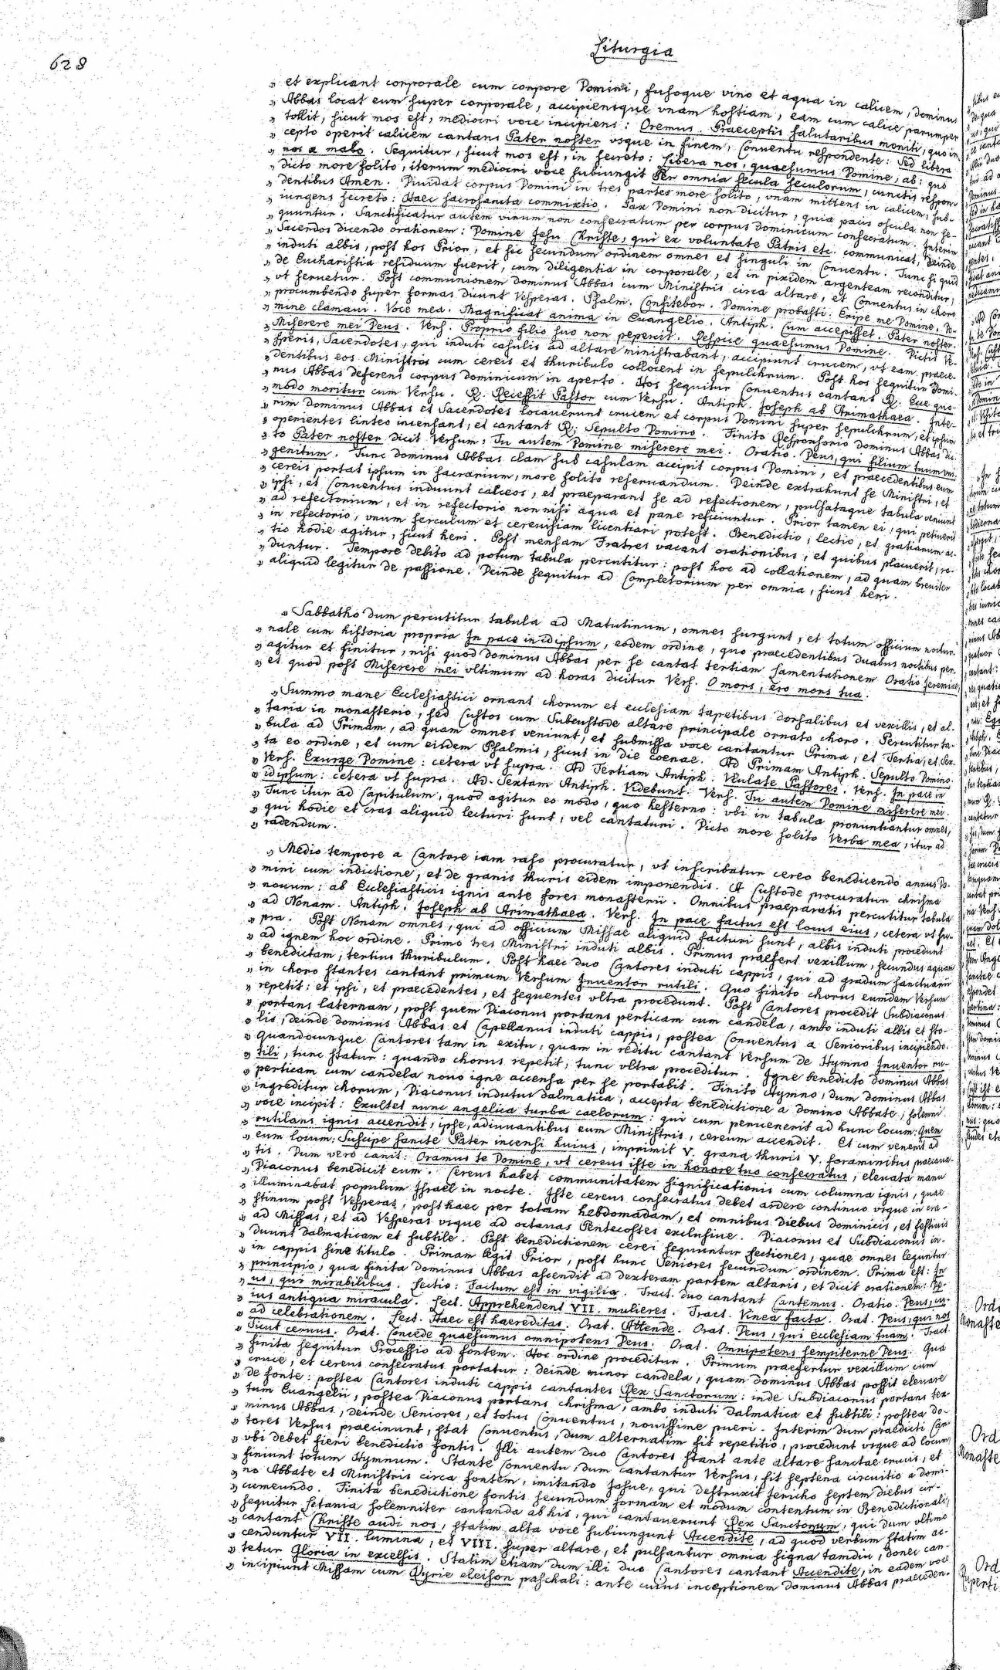 628
Liturgia
„ et explicant corporale cum corpore Domini, fusoque vino et aqua in calicem, dominus
„ Abbas locat eum super corporale, accipiensque vnam hostiam, eam cum calice parumper
„ tollit, sicut mos est, mediocri voce incipiens: Oremus. Praeceptis salutaribus moniti, quo in
„ cepto operit calicem cantans Pater noster vsque in finem, Conventu respondente: Sed libera
„ nos a malo. Sequitur, sicut mos est, in secreto: Libera nos, quaesumus Domine, ab: quo
„ dicto more solito, iterum mediocri voce subiungit Per omnia secula seculorum, cunctis respon-
„ dentibus Amen. Diuidat corpus Domini in tres partes more solito, vnam mittens in calicem, sub-
„ iungens secreto: Haec sacrosancta commixtio. Pax Domini non dicitur, quia pacis oscula non se-
„ quuntur. Sanctificatur autem vinum non consecratum per corpus dominicum consecratum. Interim
„ Sacerdos dicendo orationem: Domine Jesu Christe, qui ex voluntate Patris etc. communicat, Deinde
„ induti albis, post hos Prior, et sic secundum ordinem omnes et singuli in Conuentu. Tunc si quid
„ de Eucharistia residuum fuerit, cum diligentia in corporale, et in pixidem argenteam reconditur,
„ vt seruetur. Post communionem dominus Abbas cum Ministris circa altare, et Conuentus in choro
„ procumbendo super formas dicunt Vesperas. Psalm. Confitebor. Domine probasti. Eripe me Domine, Do-
„ mine clamaui. Voce mea. Magnificat anima in Euangelio. Antiph. Cum accepisset. Pater noster.
„ Miserere mei Deus. Vers. Proprio filio suo non pepercit. Respice quaesumus Domine. Dictis Ve-
„ speris, Sacerdotes, qui induti casulis ad altare ministrabant, accipiunt crucem, vt eam praece-
„ dentibus eos Ministris cum cereis et thuribulo collocent in sepulchrum. Post hos sequitur Domi-
„ nus Abbas deferens corpus dominicum in aperto. Hos sequitur Conuentus cantans R. Ecce quo-
„ modo moritur cum Versu. R. Recessit Pastor cum Versu. Antiph. Joseph ab Arimathaea. Inte-
„ rim dominus Abbas et Sacerdotes locauerunt crucem et corpus Domini super sepulchrum, et ipsum
„ operientes linteo incensant, et cantant R. Sepulto Domino. Finito Responsorio dominus Abbas dic-
„ to Pater noster dicit Versum: Tu autem Domine miserere mei. Oratio. Deus, qui filium tuum uni-
„ genitum. Tunc dominus Abbas clam sub casulam accipit corpus Domini, et praecedentibus eum
„ cereis portat ipsum in sacrarium, more solito reseruandum. Deinde extrahunt se Ministri, et
„ ipsi, et Conuentus induunt calceos, et praeparant se ad refectionem, pulsataque tabula veniunt
„ ad refectorium, et in refectorio non nisi aqua et pane reficiuntur. Prior tamen ei, qui petiuerit
„ in refectorio, vnum ferculum et cereuisiam licentiari potest. Benedictio, lectio, et gratiarum ac-
„ tio hodie agitur, sicut heri. Post mensam Fratres vacant orationibus, et quibus placuerit, re-
„ duntur. Tempore debito ad potum tabula percutitur: post hoc ad collationem, ad quam breuiter
„ aliquid legitur de passione. Deinde sequitur ad Completorium per omnia, sicut heri.
„ Sabbatho dum percutitur tabula ad Matutinum, omnes surgunt, et totum officium noctur-
„ nale cum historia propria In pace in idipsum, eodem ordine, quo praecedentibus duabus noctibus per-
„ agitur et finitur, nisi quod dominus Abbas per se cantat tertiam Lamentationem Oratio Jeremiae,
„ et quod post Miserere mei vltimum ad horas dicitur Vers. O mors, ero mors tua.
„ Summo mane Ecclesiastici ornant chorum et ecclesiam tapetibus dorsalibus et vexillis, et al-
„ taria in monasterio, sed Custos cum Subcustode altare principale ornato choro. Percutitur ta-
„ bula ad Primam, ad quam omnes veniunt, et submissa voce cantantur Prima, et Tertia, et Sex-
„ ta eo ordine, et cum eisdem Psalmis, sicut in die coenae. Ad Primam Antiph. Sepulto Domino.
„ Vers. Exurge Domine: cetera vt supra. Ad Tertiam Antiph. Vlulate Pastores. Vers. In pace in
„ idipsum: cetera vt supra. Ad Sextam Antiph. Videbunt. Vers. Tu autem Domine miserere mei.
„ Tunc itur ad Capitulum, quod agitur eo modo, quo hesterno: vbi in tabula pronuntiantur omnes,
„ qui hodie et cras aliquid lecturi sunt, vel cantaturi. Dicto more solito Verba mea, itur ad
„ radendum.
„ Medio tempore a Cantore iam raso procuratur, vt inscribatur cereo benedicendo annus Do-
„ mini cum indictione, et de granis thuris eidem imponendis. A Custode procuratur chrisma
„ nouum: ab Ecclesiasticis ignis ante fores monasterii. Omnibus praeparatis percutitur tabula
„ ad Nonam. Antiph. Joseph ab Arimathaea. Vers. In pace factus est locus eius, cetera vt su-
„ pra. Post Nonam omnes, qui ad officium Missae aliquid facturi sunt, albis induti procedunt
„ ad ignem hoc ordine. Primo tres Ministri induti albis. Primus praefert vexillum, secundus aquam
„ benedictam, tertius thuribulum. Post haec duo Cantores induti cappis, qui ad gradum sanctuarii
„ in choro stantes cantant primum Versum Inuentor rutili. Quo finito chorus eumdem Versum
„ repetit: et ipsi, et praecedentes, et sequentes vltra procedunt. Post Cantores procedit Subdiaconus
„ portans laternam, post quem Diaconus portans perticam cum candela, ambo induti albis et sto-
„ lis, deinde dominus Abbas et Capellanus induti cappis, postea Conuentus a Senioribus incipiendo.
„ Quandocunque Cantores tam in exitu, quam in reditu cantant Versum de Hymno Inuentor ru-
„ tili, tunc statur: quando chorus repetit, tunc vltra proceditur. Igne benedicto dominus Abbas
„ perticam cum candela nouo igne accensa per se portabit. Finito Hymno, dum dominus Abbas
„ ingreditur chorum, Diaconus indutus dalmatica, accepta benedictione a domino Abbate, solenni
„ voce incipit: Exultet nunc angelica turba caelorum, qui cum peruenerit ad hunc locum: Quem
„ rutilans ignis accendit, ipse, adiuuantibus eum Ministris, cereum accendit. Et cum venerit ad
„ eum locum: Suscipe sancte Pater incensi huius, imprimit V. grana thuris V. foraminibus praepara-
„ tis. Dum vero canit: Oramus te Domine, vt cereus iste in honore tuo consecratus, eleuata manu
„ Diaconus benedicit eum. Cereus habet communitatem significationis cum columna ignis, quae
„ illuminabat populum Israel in nocte. Iste cereus consecratus debet ardere continuo vsque in cra-
„ stinum post Vesperas, post haec per totam hebdomadam, et omnibus diebus dominicis, et festiuis
„ ad Missas, et ad Vesperas vsque ad octauas Pentecostes exclusiue. Diaconus et Subdiaconus in-
„ duunt dalmaticam et subtile. Post benedictionem cerei sequuntur Lectiones, quae omnes leguntur
„ in cappis sine titulo. Primam legit Prior, post hunc Seniores secundum ordinem. Prima est: In
„ principio, qua finita dominus Abbas ascendit ad dexteram partem altaris, et dicit orationem: De-
„ us, qui mirabilibus. Lectio: Factum est in vigilia. Tract. duo cantant Cantemus. Oratio. Deus, cu-
„ ius antiqua miracula. Lect. Apprehendent VII. mulieres. Tract. Vinea facta. Orat. Deus, qui nos
„ ad celebrationem. Lect. Haec est haereditas. Orat. Attende. Orat. Deus, qui ecclesiam tuam. Tract.
„ Sicut ceruus. Orat. Concede quaesumus omnipotens Deus. Orat. Omnipotens sempiterne Deus. Qua
„ finita sequitur Processio ad fontem. Hoc ordine proceditur. Primum praefertur vexillum cum
„ cruce, et cereus consecratus portatur: deinde minor candela, quam dominus Abbas possit eleuare
„ de fonte: postea Cantores induti cappis cantantes Rex Sanctorum: inde Subdiaconus portans tex-
„ tum Euangelii, postea Diaconus portans chrisma, ambo induti dalmatica et subtili: postea do-
„ minus Abbas, deinde Seniores, et totus Conuentus, nouissime pueri. Interim dum praedicti Can-
„ tores Versus praecinunt, stat Conuentus, dum alternatim fit repetitio, procedunt vsque ad locum,
„ vbi debet fieri benedictio fontis. Illi autem duo Cantores stant ante altare sanctae crucis, et
„ finiunt totum Hymnum. Stante Conuentu, dum cantantur Versus, fit septena circuitio a domi-
„ no Abbate et Ministris circa fontem, imitando Josue, qui destruxit Jericho septem diebus cir-
„ cumeundo. Finita benedictione fontis secundum formam et modum contentum in Benedictionali,
„ sequitur Letania solemniter cantanda ab his, qui cantauerunt Rex Sanctorum, qui dum vltimo
„ cantant Christe audi nos, statim alta voce subiungunt Accendite, ad quod verbum statim ac-
„ cenduntur VII. lumina, et VIII. super altare, et pulsantur omnia signa tamdiu, donec can-
„ tetur Gloria in excelsis. Statim etiam dum illi duo Cantores cantant Accendite, in eadem voce
„ incipiunt Missam cum Kyrie eleison paschali: ante cuius inceptionem dominus Abbas praeceden-